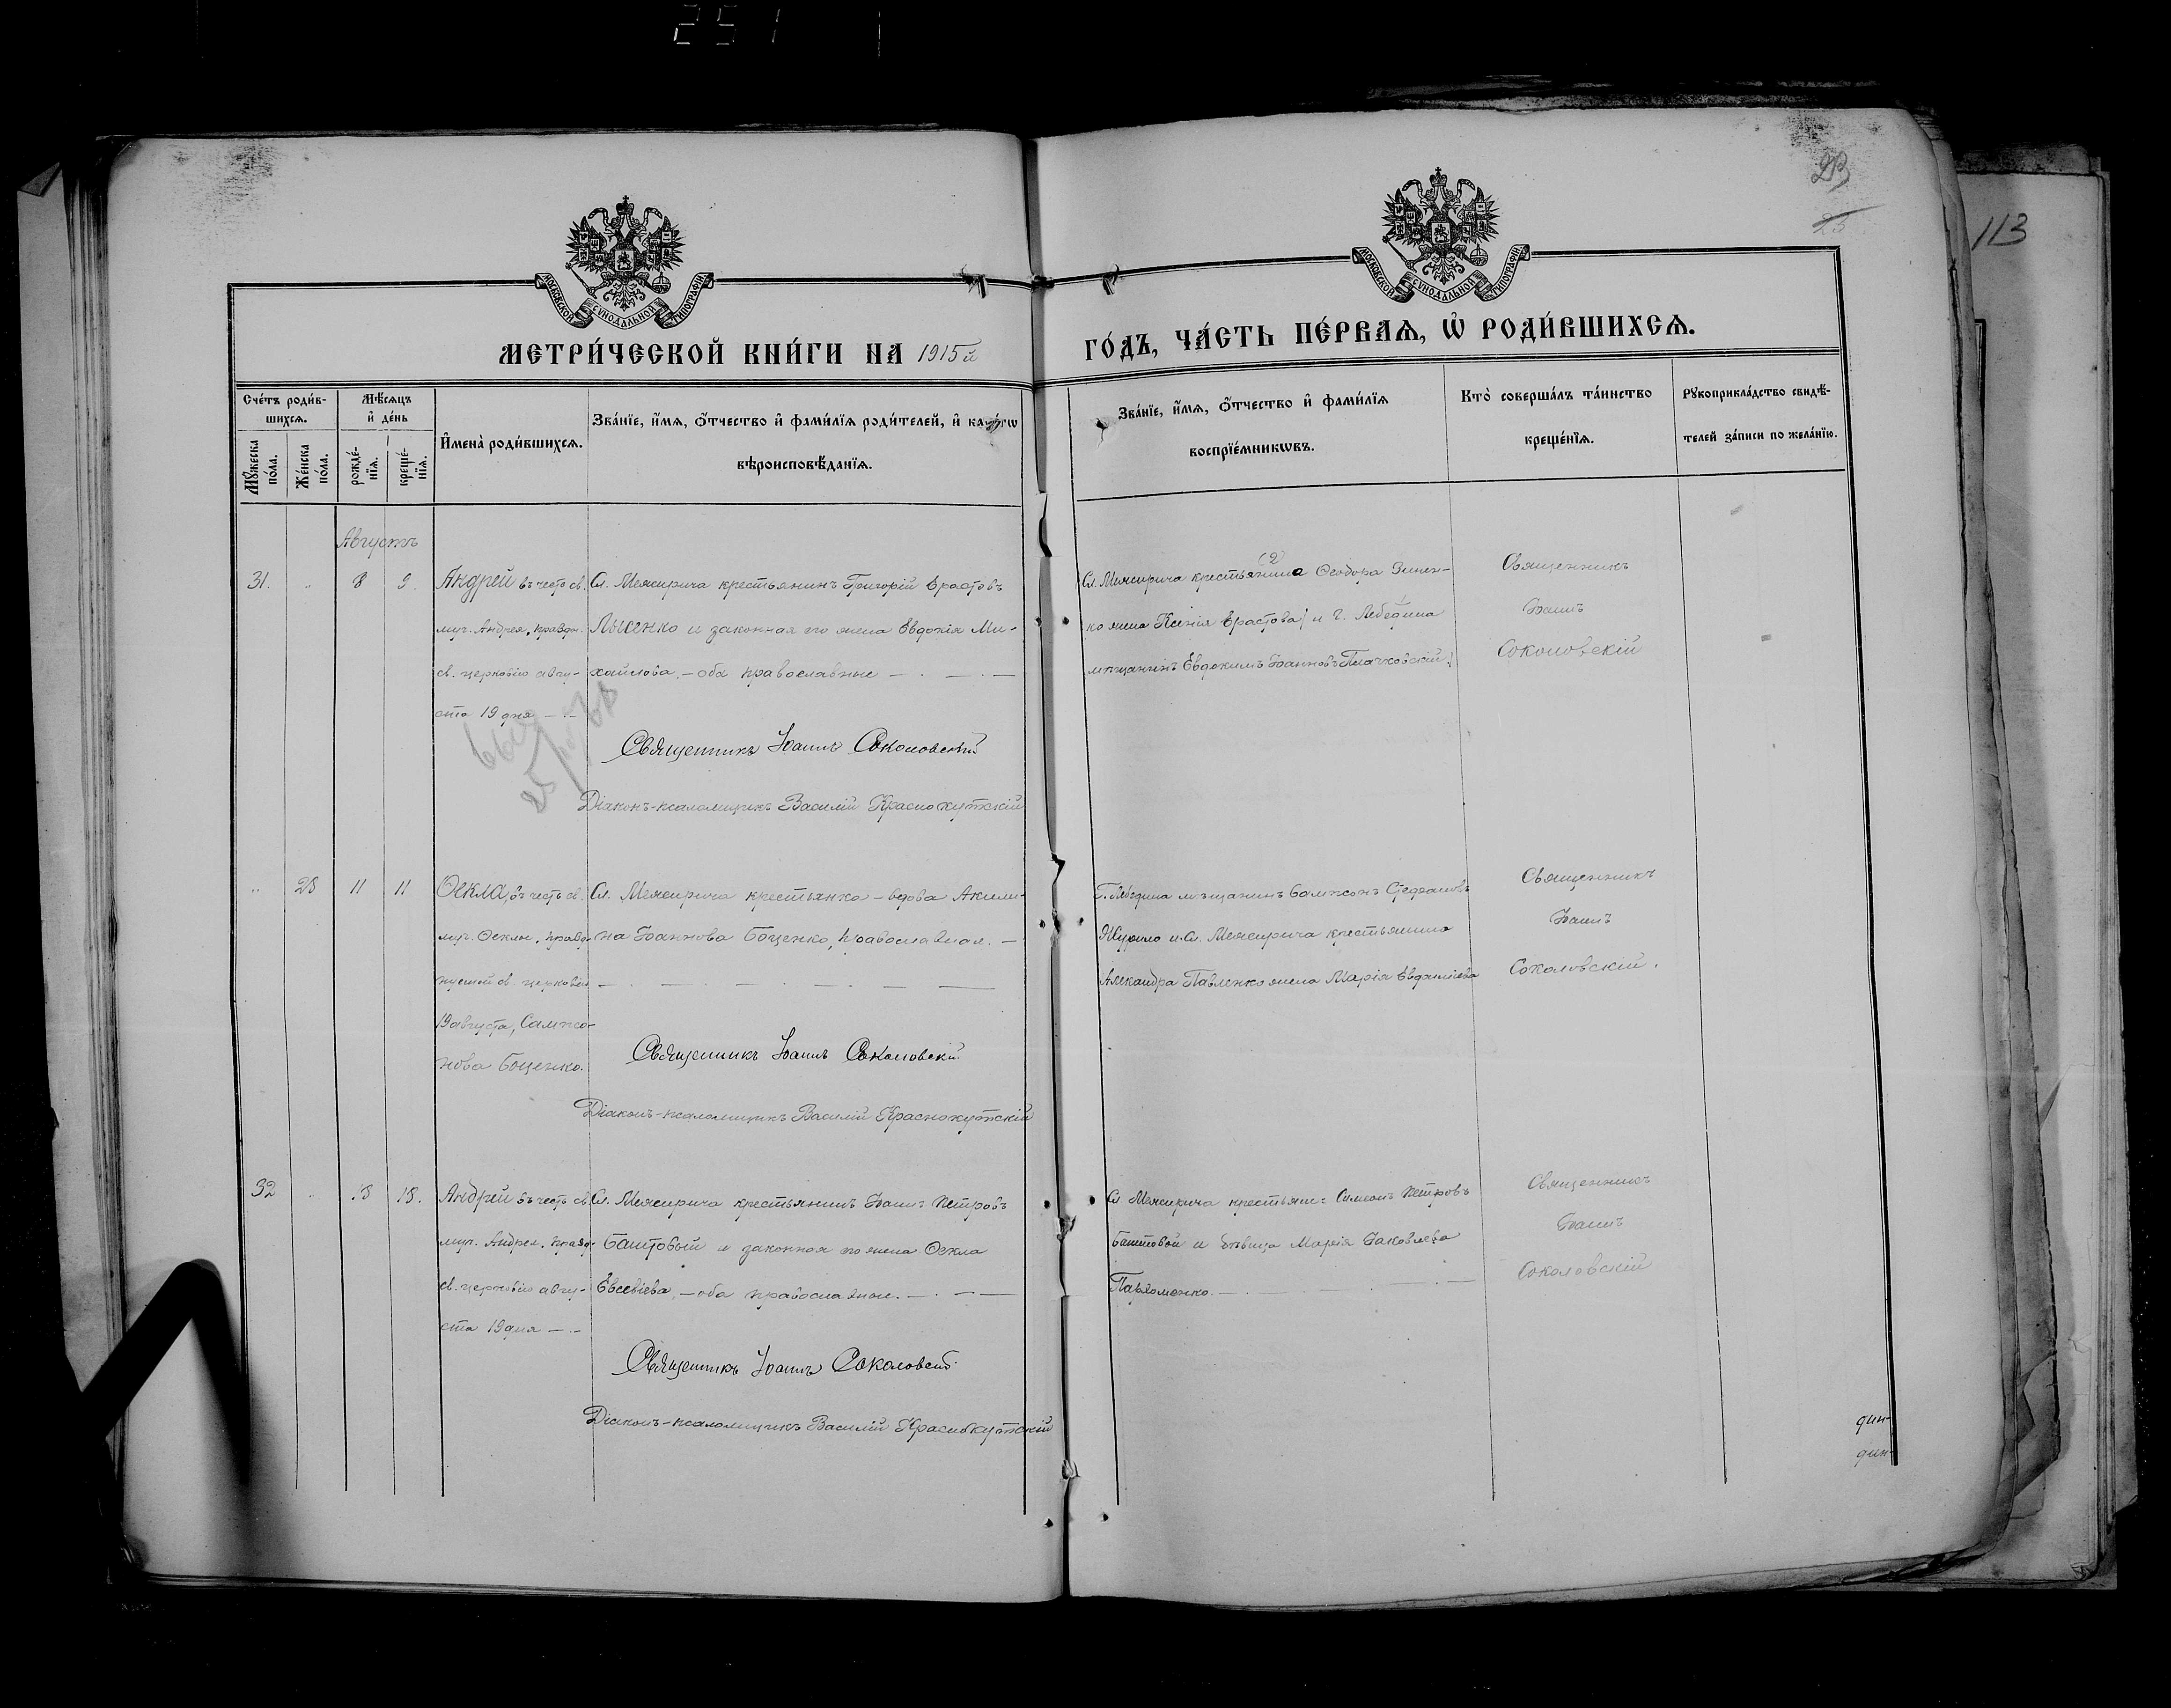 251
23
25
113
МОСКОВСКОЙ СѴНОДАЛЬНОЙ ТИПОГРАФІИ
МОСКОВСКОЙ СѴНОДАЛЬНОЙ ТИПОГРАФІИ
МЕТРИ́ЧЕСКОЙ КНИ́ГИ НА 1915й
ГО́ДЪ, ЧА́СТЬ ПЕ́РВАѦ, Ѽ РОДИ́ВШИХСѦ.
Сче́тъ роди́в-
шихсѧ.
Мꙋ́жеска по́ла.
Же́нска по́ла.
Мѣ́сѧцъ и҆ де́нь
рожде́-нїѧ.
креще́-нїѧ.
И҆мена̀ роди́вшихсѧ.
Зва́нїе, и҆́мѧ, ѻ҆́тчество и҆ фами́лїѧ роди́телей, и҆ како́гѡ
вѣроисповѣ́данїѧ.
Зва́нїе, и҆́мѧ, ѻ҆́тчество и҆ фами́лїѧ
воспрїе́мникѡвъ.
Кто̀ соверша́лъ та́инство
креще́нїѧ.
Рꙋкоприкла́дство свидѣ́-
телей за́писи по жела́нїю.
Августъ
31. " 8 9.
Андрей въ честь св.
муч. Андрея, празд.
св. церковію авгу-
ста 19 дня —.—
Сл. Межирича крестьянинъ Григорій Ерастовъ
Лысенко и законная его жена Евдокія Ми-
хайлова, — оба православные — . — . —
Священникъ Іоаннъ Соколовскій
Діаконъ-псаломщикъ Василій Краснокутскій
Сл. Межирича крестьянина (2) Ѳеодора Зинен-
ко жена Ксенія Ерастова / и г. Лебедина
мѣщанинъ Евдокимъ Іоанновъ Плачковскій.
Священникъ
Іоаннъ
Соколовскій
" 28 11 11
Ѳекла, въ честь св.
муч. Ѳеклы, празд-
нуемой св. церковію
19 августа, Сампсо-
нова Боценко.
Сл. Межирича крестьянка — вдова Акили-
на Іоаннова Боценко, православная. —
Священникъ Іоаннъ Соколовскій.
Діаконъ-псаломщикъ Василій Краснокутскій
Г. Лебедина мѣщанинъ Сампсонъ Стефановъ
и Сл. Межирича крестьянина
Александра Павленко жена Марія
Священникъ
Іоаннъ
Соколовскій.
32 " 18.
Андрей въ честь св.
муч. Андрея, празд-
св. церковію авгу-
ста 19 дня —.—
Сл. Межирича крестьянинъ Іоаннъ Петровъ
Баштовый и законная его жена Ѳекла
Евсевіева, — оба православные. — . — —
Священникъ Іоаннъ Соколовскій.
Діаконъ-псаломщикъ Василій Краснокутскій
Сл. Межирича крестьян: Симеонъ Петровъ
Баштовой и дѣвица Марія Іаковлева
Пархоменко. —
Священникъ
Іоаннъ
Соколовскій
дин-
дин-